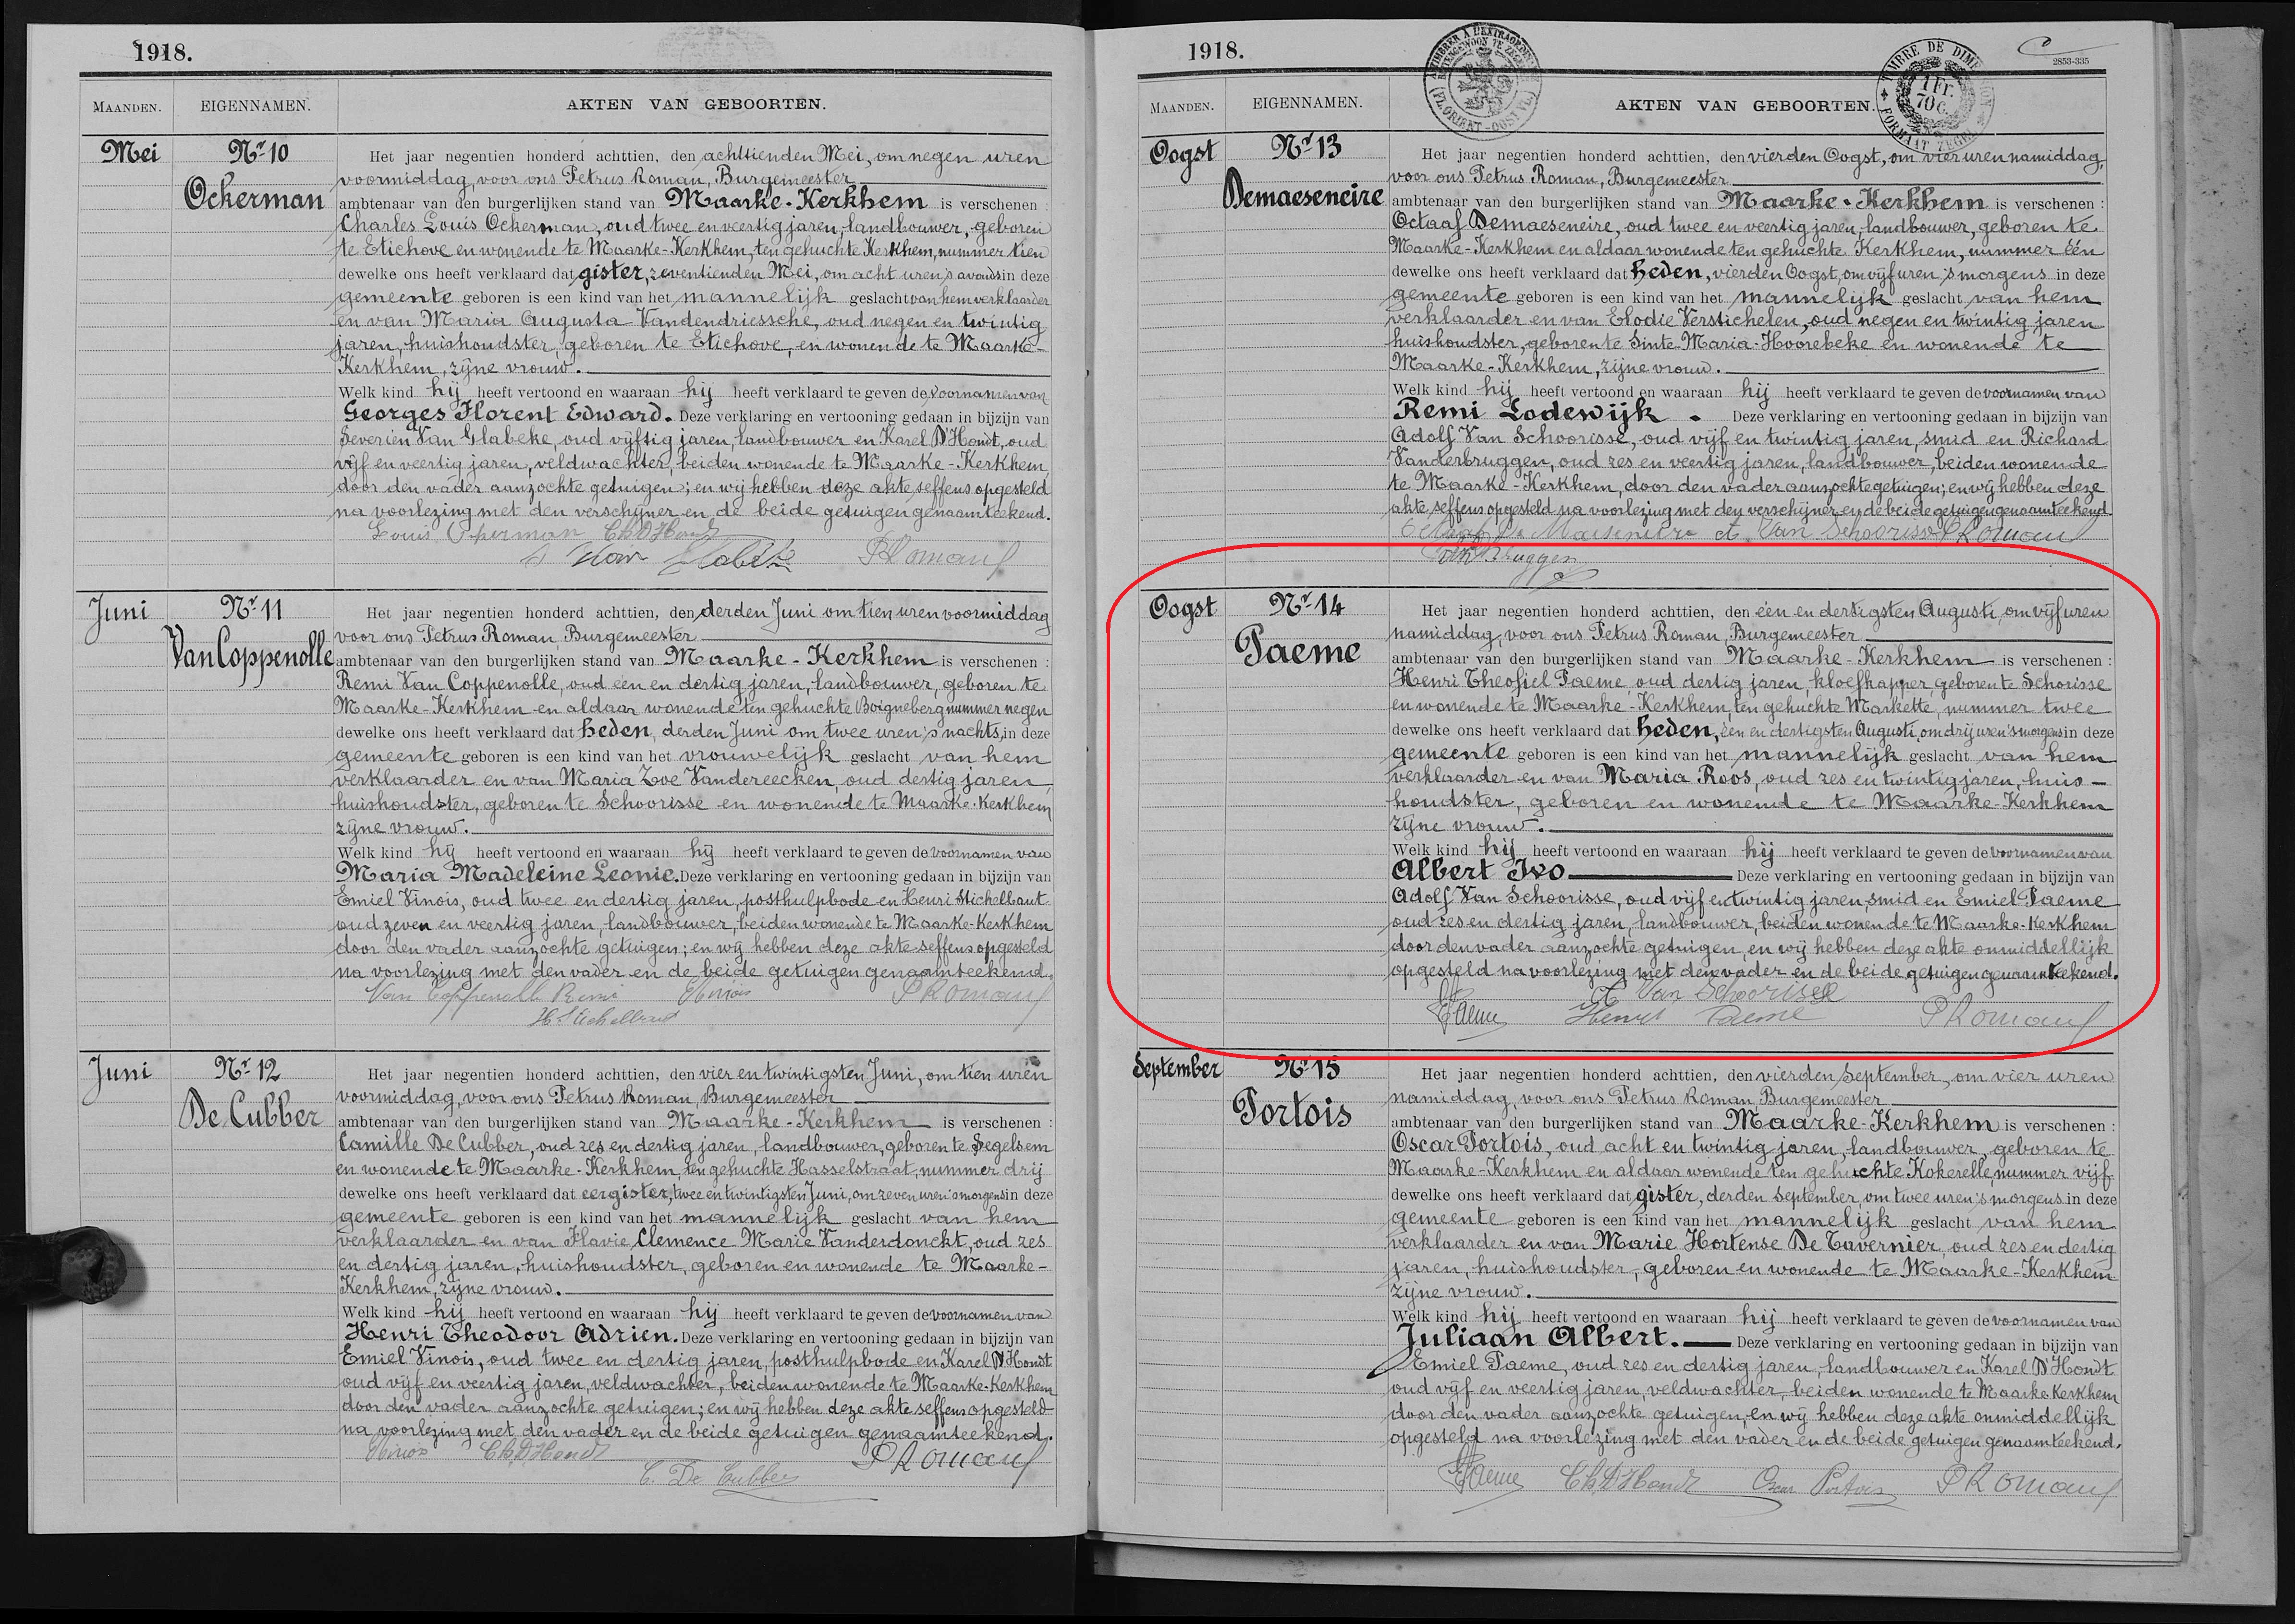 1918.
MAANDEN. EIGENNAMEN. AKTEN VAN GEBOORTEN.
Mei Nr 10 Het jaar negentien honderd achttien, den achttienden Mei, om negen uren
voormiddag, voor ons Petrus Roman, Burgemeester
Ockerman ambtenaar van den burgerlijken stand van Maarke-Kerkhem is verschenen :
Charles Louis Ockerman, oud twee en veertig jaren, landbouwer, geboren
te Etichove en wonende te Maarke-Kerkhem, ten gehuchte Kerkhem, nummer tien
dewelke ons heeft verklaard dat gister, zeventienden Mei, om acht uren 's avonds in deze
gemeente geboren is een kind van het mannelijk geslacht van hem verklaarder
en van Maria Augusta Vandendriessche, oud negen en twintig
jaren, huishoudster, geboren te Etichove, en wonende te Maarke-
Kerkhem, zijne vrouw.
Welk kind hij heeft vertoond en waaraan hij heeft verklaard te geven de voornamen van
Georges Florent Edward. Deze verklaring en vertooning gedaan in bijzijn van
Severien Van Glabeke, oud vijftig jaren, landbouwer en Karel D'Hondt, oud
vijf en veertig jaren, veldwachter, beiden wonende te Maarke-Kerkhem,
door den vader aanzochte getuigen; en wij hebben deze akte seffens opgesteld
na voorlezing met den verschijner en de beide getuigen genaamteekend.
Louis Ockerman Ch. D'Hondt
S Van Glabeke PRoman
Juni Nr 11 Het jaar negentien honderd achttien, den derden Juni om tien uren voormiddag
voor ons Petrus Roman, Burgemeester
Van Coppenolle ambtenaar van den burgerlijken stand van Maarke-Kerkhem is verschenen :
Remi Van Coppenolle, oud een en dertig jaren, landbouwer, geboren te
Maarke-Kerkhem en aldaar wonende ten gehuchte Boigneberg nummer negen
dewelke ons heeft verklaard dat heden, derden Juni om twee uren 's nachts, in deze
gemeente geboren is een kind van het vrouwelijk geslacht van hem
verklaarder en van Maria Zoe Vandereecken, oud dertig jaren,
huishoudster, geboren te Schoorisse en wonende te Maarke-Kerkhem
zijne vrouw.
Welk kind hij heeft vertoond en waaraan hij heeft verklaard te geven de voornamen van
Maria Madeleine Leonie. Deze verklaring en vertooning gedaan in bijzijn van
Emiel Vinois, oud twee en dertig jaren, posthulpbode en Henri Stichelbaut
oud zeven en veertig jaren, landbouwer, beiden wonende te Maarke-Kerkhem
door den vader aanzochte getuigen; en wij hebben deze akte seffens opgesteld
na voorlezing met den vader en de beide getuigen genaamteekend.
Van Coppenolle Remi EVinois PRoman
H. Stichelbaut
Juni Nr 12 Het jaar negentien honderd achttien, den vier en twintigsten Juni, om tien uren
voormiddag, voor ons Petrus Roman, Burgemeester
De Cubber ambtenaar van den burgerlijken stand van Maarke-Kerkhem is verschenen :
Camille De Cubber, oud zes en dertig jaren, landbouwer, geboren te Segelsem
en wonende te Maarke-Kerkhem, ten gehuchte Hasselstraat, nummer drij
dewelke ons heeft verklaard dat eergister, twee en twintigsten Juni, om zeven uren 's morgens in deze
gemeente geboren is een kind van het mannelijk geslacht van hem
verklaarder en van Flavie Clemence Marie Vanderdonckt, oud zes
en dertig jaren, huishoudster, geboren en wonende te Maarke-
Kerkhem, zijne vrouw.
Welk kind hij heeft vertoond en waaraan hij heeft verklaard te geven de voornamen van
Henri Theodoor Adrien. Deze verklaring en vertooning gedaan in bijzijn van
Emiel Vinois, oud twee en dertig jaren, posthulpbode en Karel D'Hondt
oud vijf en veertig jaren, veldwachter, beiden wonende te Maarke-Kerkhem
door den vader aanzochte getuigen; en wij hebben deze akte seffens opgesteld
na voorlezing met den vader en de beide getuigen genaamteekend.
EVinois Ch. D'Hondt PRoman
C. De Cubber
1918. 2853-335
TIMBRE DE DIMENSION 1 Fr. 70 c. FORMAAT ZEGEL
MAANDEN. EIGENNAMEN. AKTEN VAN GEBOORTEN.
Oogst Nr 13 Het jaar negentien honderd achttien, den vierden Oogst, om vier uren namiddag,
voor ons Petrus Roman, Burgemeester
Demaeseneire ambtenaar van den burgerlijken stand van Maarke-Kerkhem is verschenen :
Octaaf Demaeseneire, oud twee en veertig jaren, landbouwer, geboren te
Maarke-Kerkhem en aldaar wonende ten gehuchte Kerkhem, nummer één
dewelke ons heeft verklaard dat heden, vierden Oogst, om vijf uren 's morgens in deze
gemeente geboren is een kind van het mannelijk geslacht van hem
verklaarder en van Elodie Verstichelen, oud negen en twintig jaren
huishoudster, geboren te Sinte-Maria-Hoorebeke en wonende te
Maarke-Kerkhem, zijne vrouw.
Welk kind hij heeft vertoond en waaraan hij heeft verklaard te geven de voornamen van
Remi Lodewijk. Deze verklaring en vertooning gedaan in bijzijn van
Adolf Van Schoorisse, oud vijf en twintig jaren, smid en Richard
Vanderbruggen, oud zes en veertig jaren, landbouwer, beiden wonende
te Maarke-Kerkhem, door den vader aanzochte getuigen; en wij hebben deze
akte seffens opgesteld na voorlezing met den verschijner en de beide getuigen genaamteekend.
Octaaf De Maeseneire A Van Schoorisse PRoman
Oogst Nr 14 Het jaar negentien honderd achttien, den een en dertigsten Augusti, om vijf uren
namiddag, voor ons Petrus Roman, Burgemeester
Paeme ambtenaar van den burgerlijken stand van Maarke-Kerkhem is verschenen :
Henri Theofiel Paeme, oud dertig jaren, kloefkapper, geboren te Schorisse
en wonende te Maarke-Kerkhem, ten gehuchte Markette, nummer twee
dewelke ons heeft verklaard dat heden, een en dertigsten Augusti, om drij uren 's morgens in deze
gemeente geboren is een kind van het mannelijk geslacht van hem
verklaarder en van Maria Roos, oud zes en twintig jaren, huis-
houdster, geboren en wonende te Maarke-Kerkhem
zijne vrouw.
Welk kind hij heeft vertoond en waaraan hij heeft verklaard te geven de voornamen van
Albert Ivo Deze verklaring en vertooning gedaan in bijzijn van
Adolf Van Schoorisse, oud vijf en twintig jaren, smid en Emiel Paeme
oud zes en dertig jaren, landbouwer, beiden wonende te Maarke-Kerkhem
door den vader aanzochte getuigen, en wij hebben deze akte onmiddellijk
opgesteld na voorlezing met den vader en de beide getuigen genaamteekend.
A Van Schoorisse
EPaeme Henri Paeme PRoman
September Nr 15 Het jaar negentien honderd achttien, den vierden September, om vier uren
namiddag, voor ons Petrus Roman Burgemeester
Portois ambtenaar van den burgerlijken stand van Maarke-Kerkhem is verschenen :
Oscar Portois, oud acht en twintig jaren, landbouwer, geboren te
Maarke-Kerkhem en aldaar wonende ten gehuchte Kokerelle, nummer vijf
dewelke ons heeft verklaard dat gister, derden September, om twee uren 's morgens in deze
gemeente geboren is een kind van het mannelijk geslacht van hem
verklaarder en van Marie Hortense De Tavernier, oud zes en dertig
jaren, huishoudster, geboren en wonende te Maarke-Kerkhem
zijne vrouw.
Welk kind hij heeft vertoond en waaraan hij heeft verklaard te geven de voornamen van
Juliaan Albert. Deze verklaring en vertooning gedaan in bijzijn van
Emiel Paeme, oud zes en dertig jaren, landbouwer en Karel D'Hondt
oud vijf en veertig jaren, veldwachter, beiden wonende te Maarke-Kerkhem
door den vader aanzochte getuigen, en wij hebben deze akte onmiddellijk
opgesteld na voorlezing met den vader en de beide getuigen genaamteekend.
EPaeme Ch. D'Hondt Oscar Portois PRoman